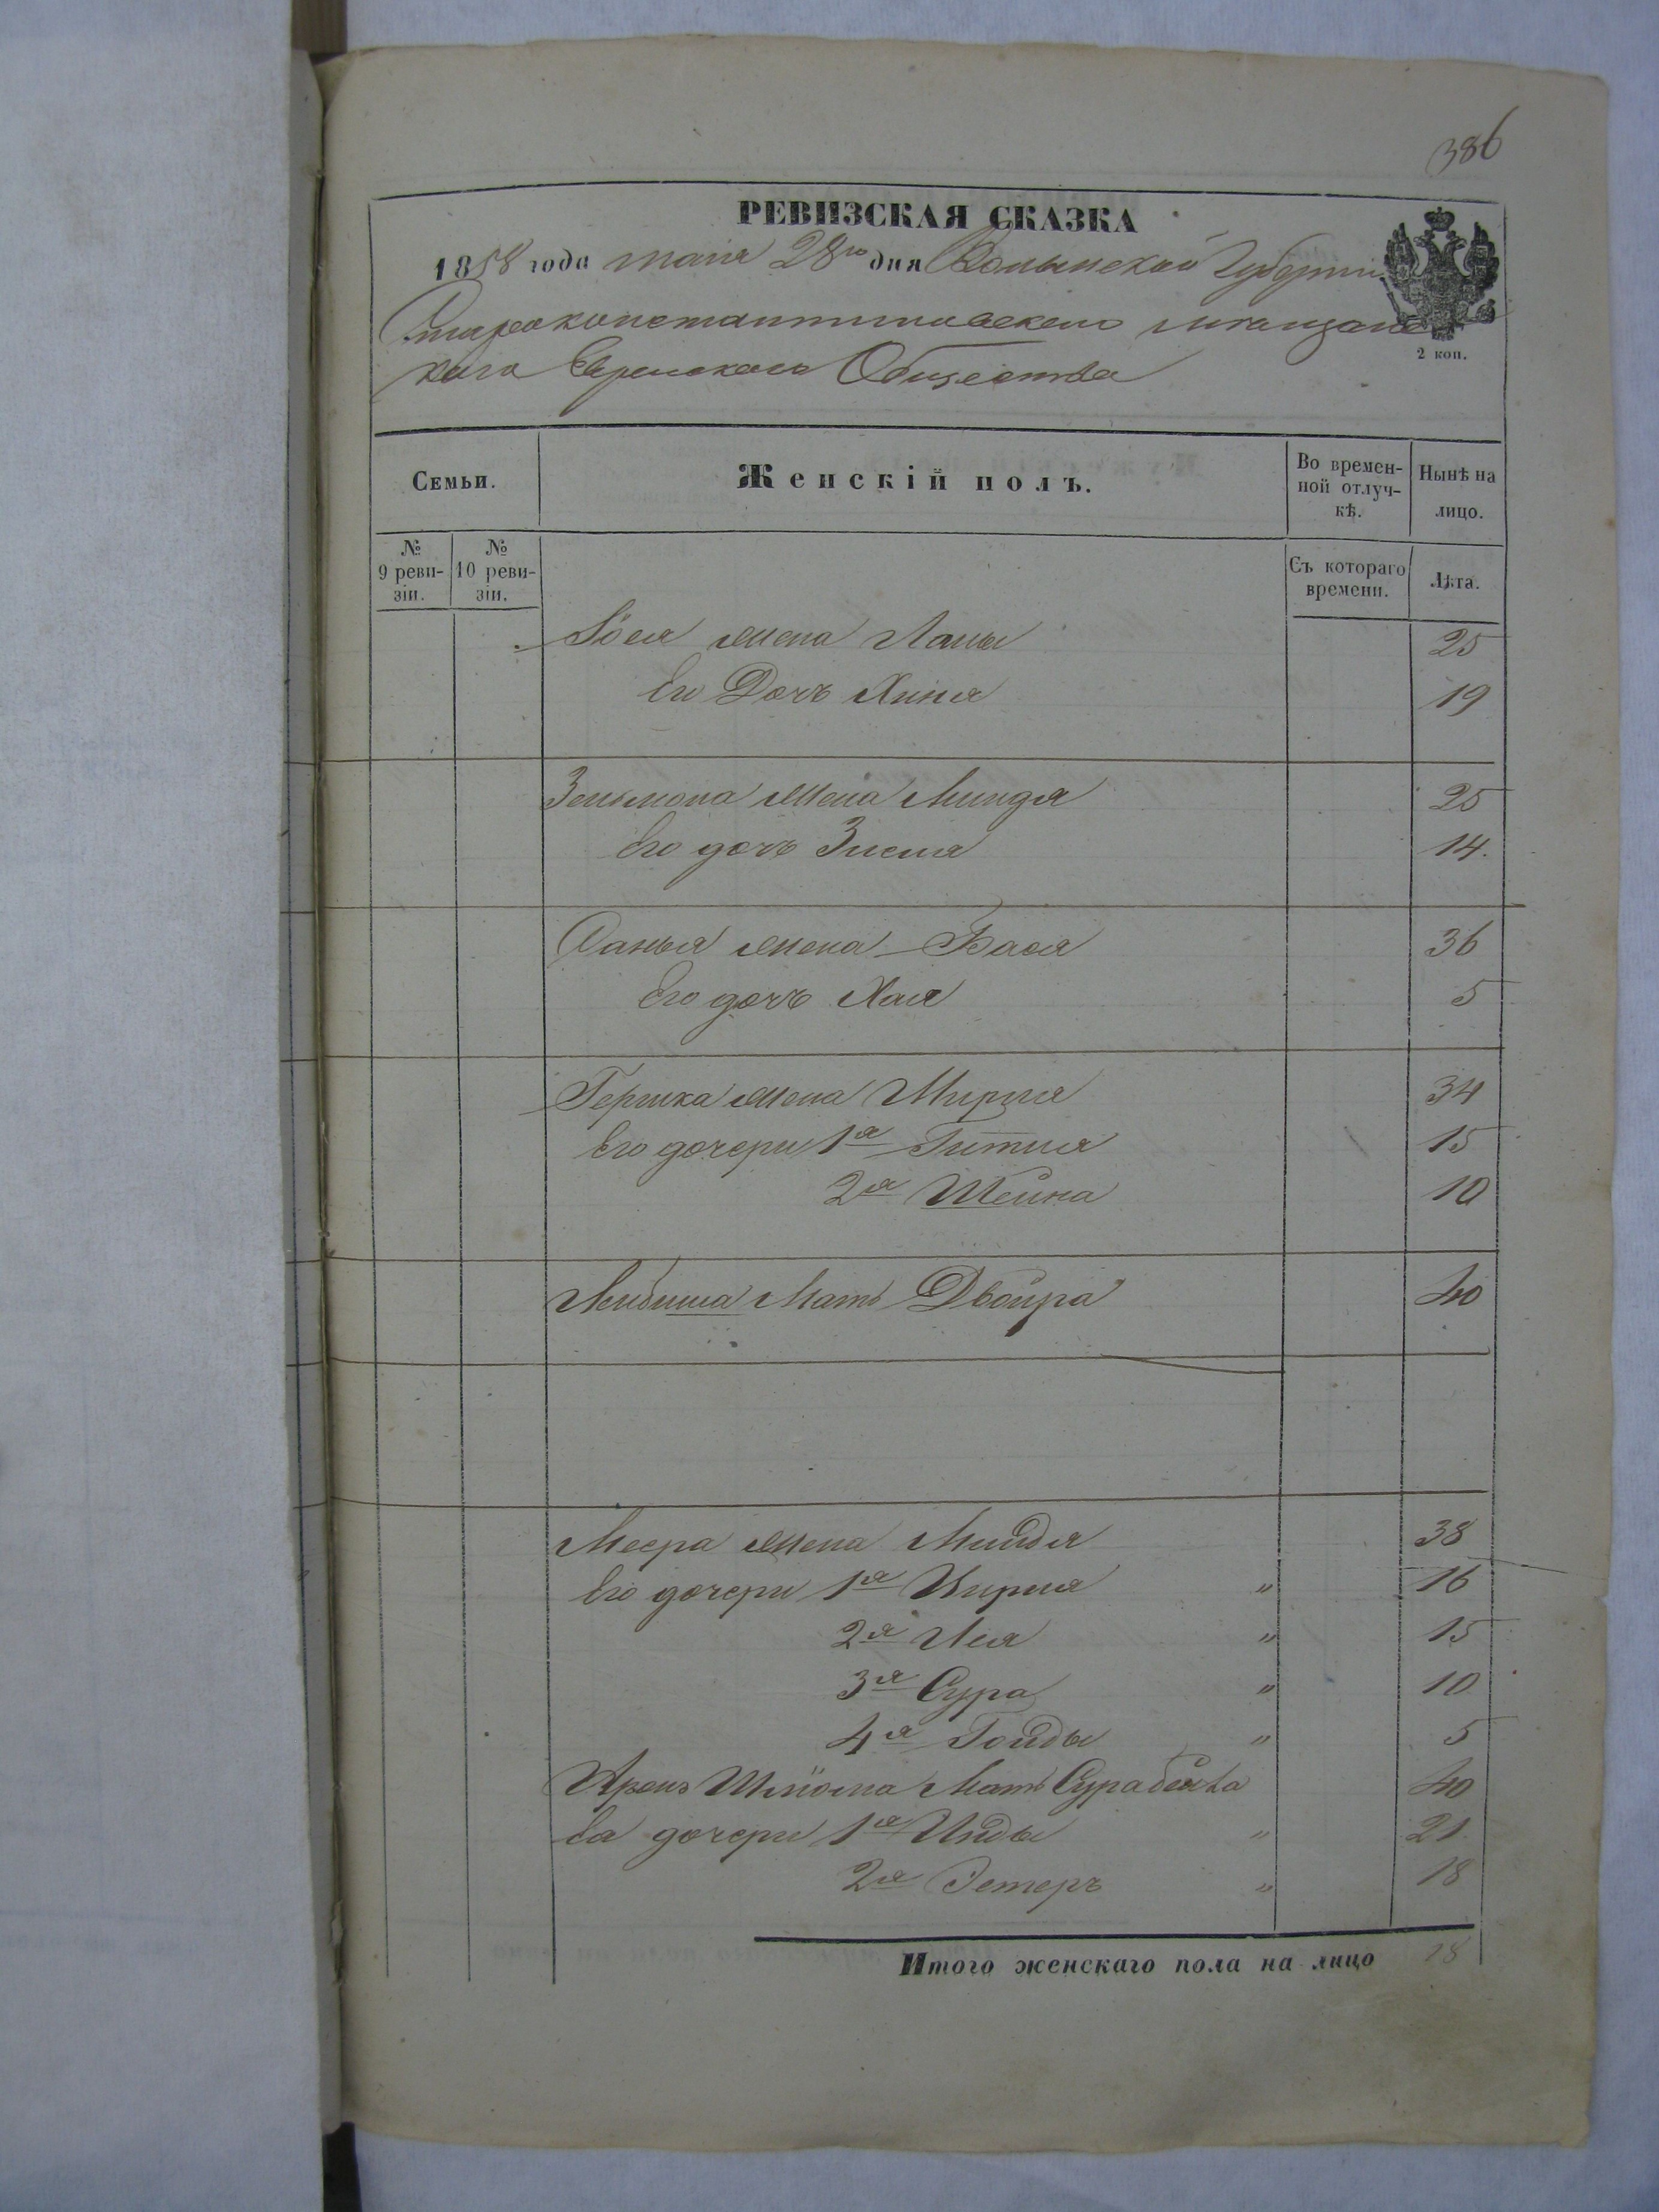 386
РЕВИЗСКАЯ СКАЗКА
1858 года маія 28го дня Волынской Губерніи
Староконстантиновскаго мѣщанс
кага Еврейскаго Общества
2 коп.
Семьи.
Женскій полъ.
Во времен-
ной отлуч-
кѣ.
Нынѣ на
лицо.
№
9 реви-
зіи.
№
10 реви-
зіи.
Съ котораго
времени.
Лѣта.
Іося жена 25
Его Дочь Хиня 19
Зельмана жена Миндя 25
Его дочь Зисля 14.
жена Бася 36
Его дочь Хая 5
Гершка жена Мирля 34
Его дочери 1я Гитля 15
2я Шейна 10
Лейбиша Мать Двойра 40
Меера жена Миндля 38
Его дочери 1я Цирля " 16
2я Лея " 15
3я Сура " 10
4я Гольды " 5
Аронъ Шліома Мать Сура бейла 40
Еа дочери 1я Инды " 21
2я Эстеръ " 18
Итого женскаго пола на лицо 18